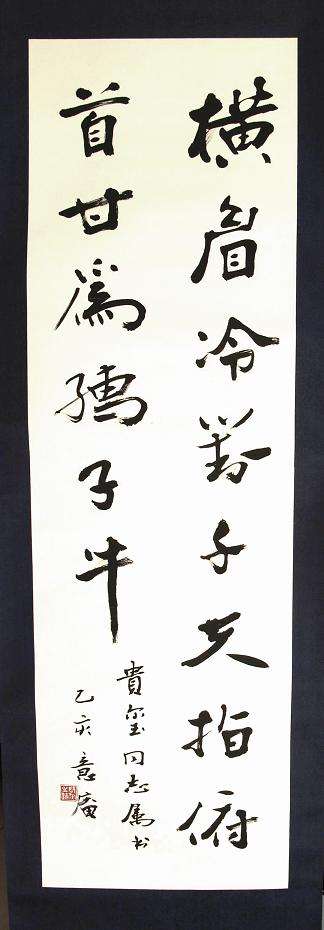 橫眉冷對千夫指俯
首甘爲孺子牛
貴玺同志属书
乙亥 意庵